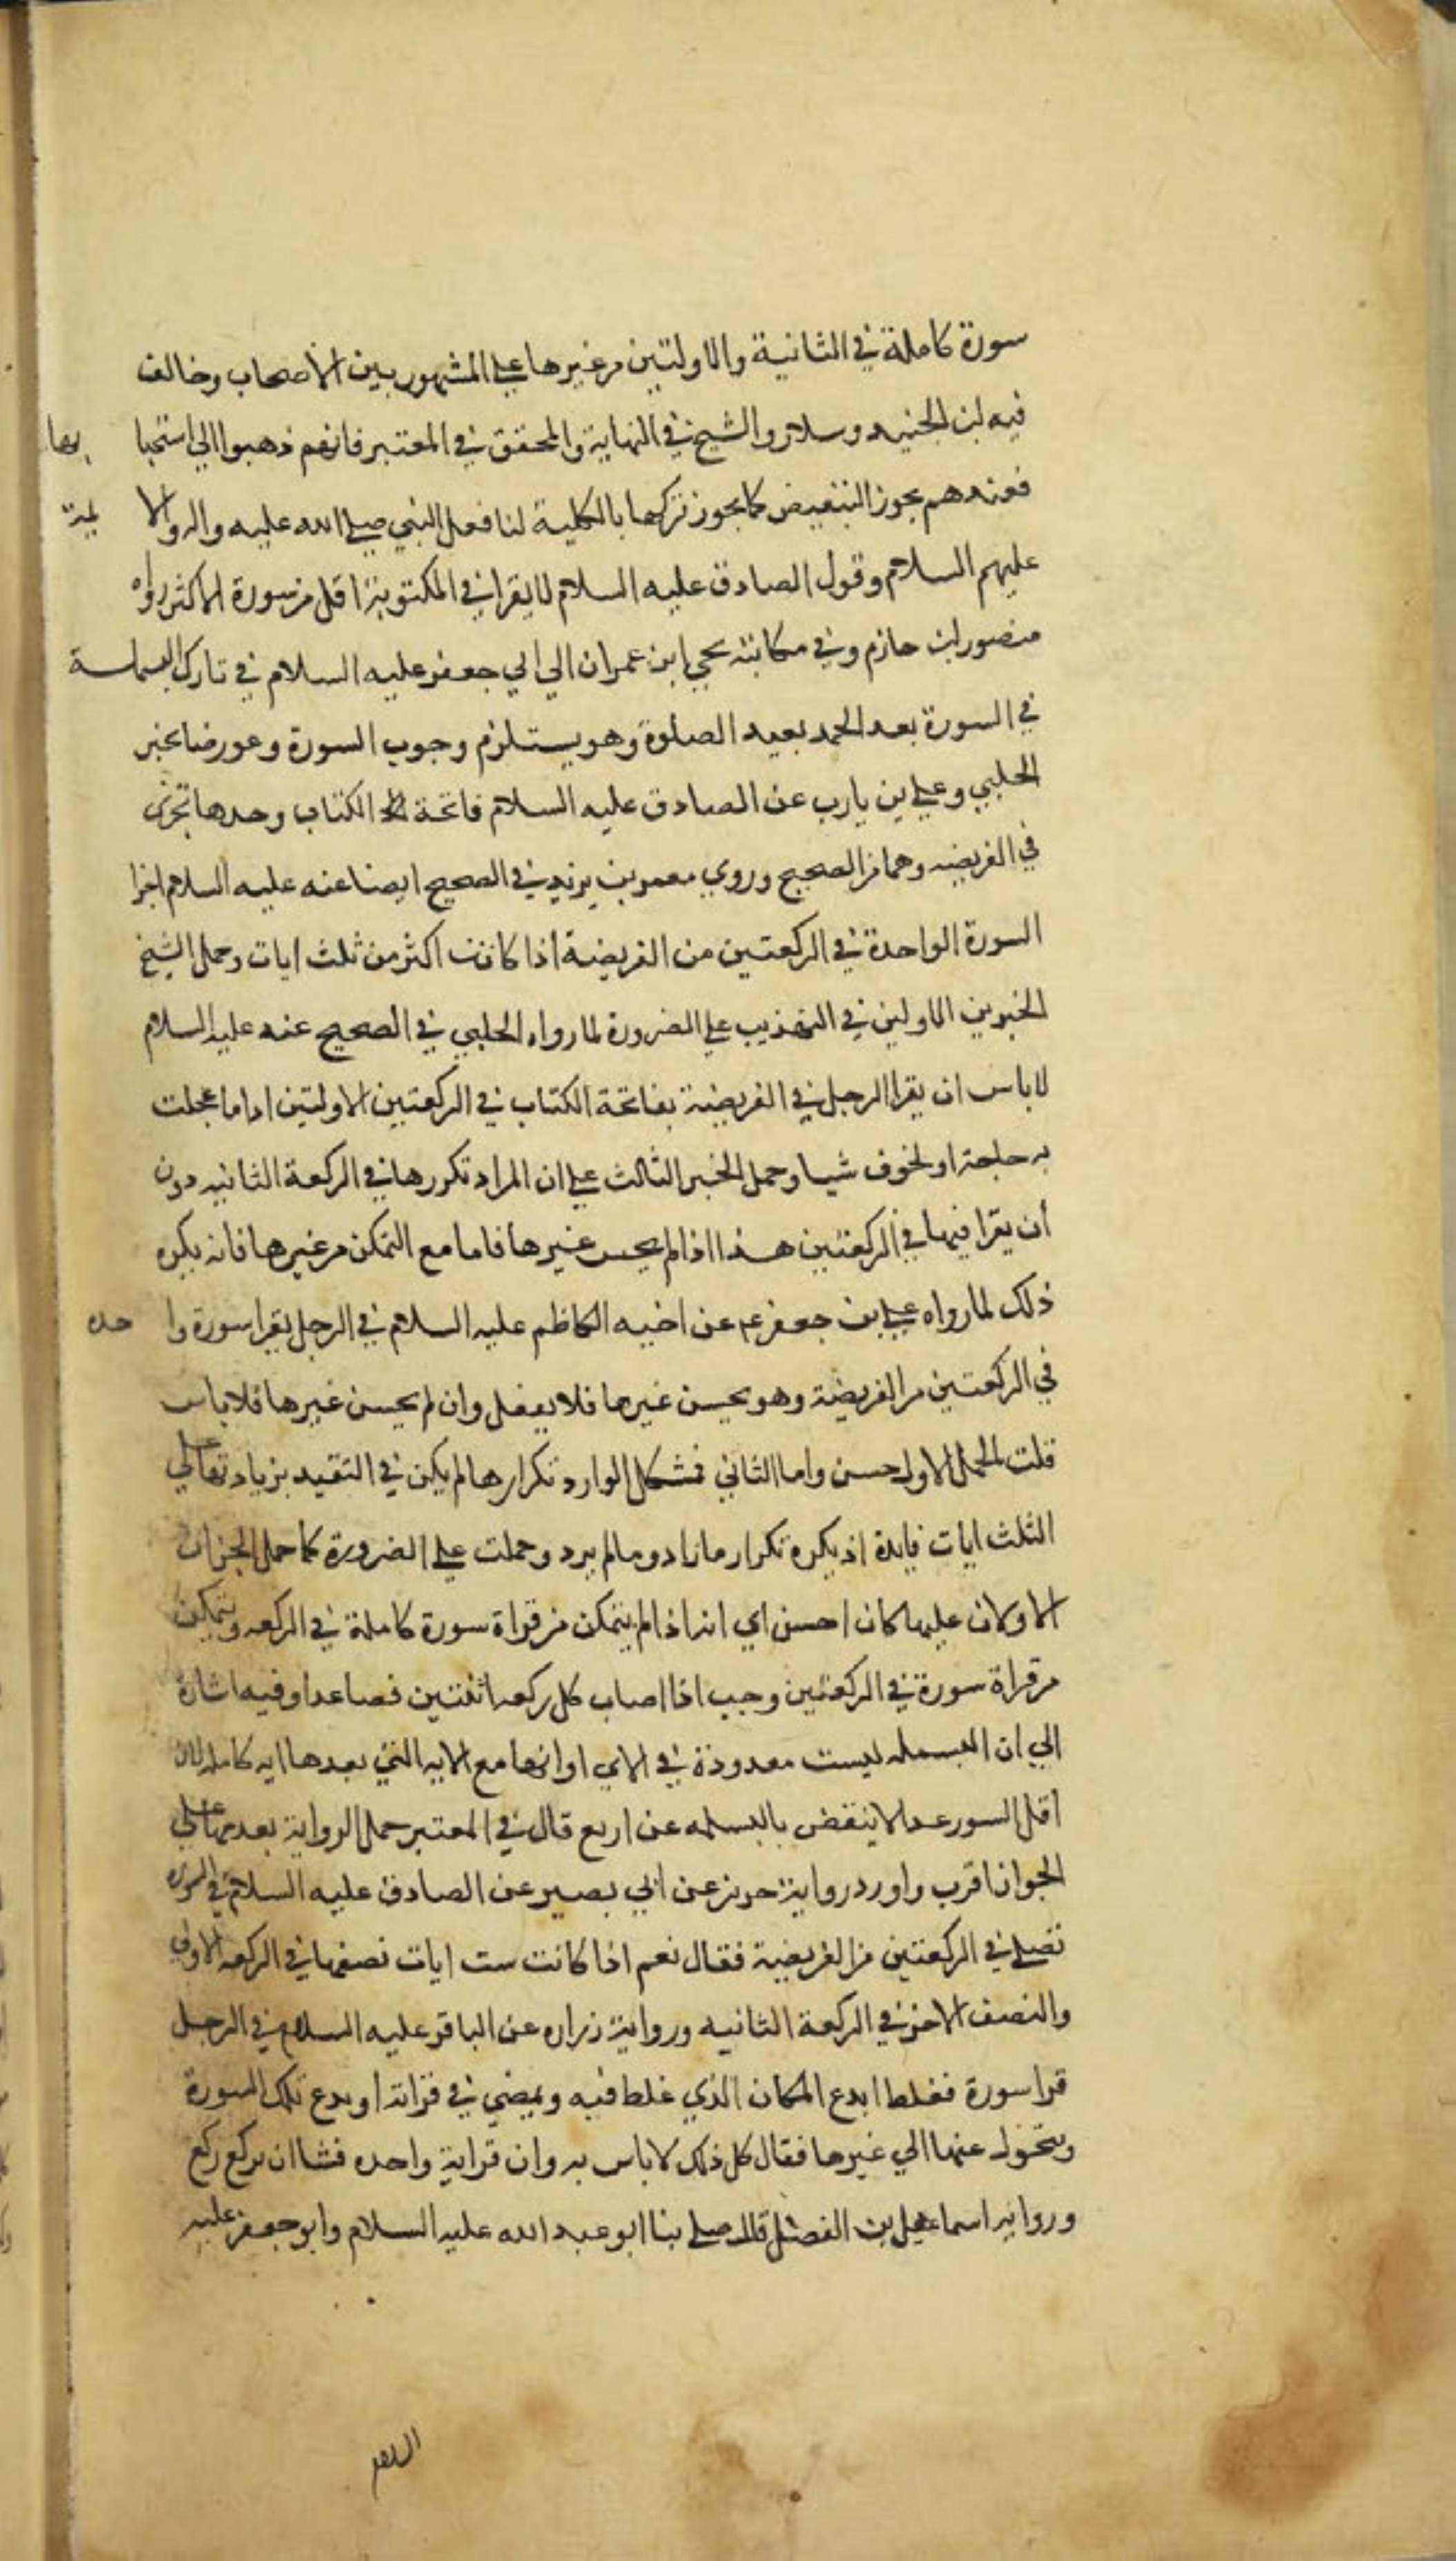 سورة كاملة في الثانية والاولتين من غيرها علي المشهور بين الاصحاب وخالف
فيه ابن الجنيد وسلار والشيخ في النهاية والمحقق في المعتبر فانهم ذهبوا الي استحبا بها
فعندهم يجوز التبعيض كما يجوز تركها بالكلية لنا فعل النبي صلي الله عليه واله والا ئمة
عليهم السلام وقول الصادق عليه السلام لا يقرا في المكتوبة اقل من سورة لا اكثر رواه
منصور ابن حازم وفي مكاتبة يحي ابن عمران الي ابي جعفر عليه السلام في تارك البسملة
في السورة بعد الحمد يعيد الصلوة وهو يستلزم وجوب السورة وعورضا بخبر
الحلبي وعلي بن يارب عن الصادق عليه السلام فاتحة الكتاب وحدها تجزي
في الفريضه وهما من الصحيح وروي معمر بن يزيد في الصحيح ايضا عنه عليه السلام اجزا
السورة الواحدة في الركعتين من الفريضة اذا كانت اكثر من ثلث ايات وحمل الشيخ
الخبرين الاولين في التهذيب علي الضرورة لما رواه الحلبي في الصحيح عنه عليه السلام
لا باس ان يقرا الرجل في الفريضة بفاتحة الكتاب في الركعتين الاولتين اذا ما عجلت
به حاجة او لخوف شيا وحمل الخبر الثالث علي ان المراد تكررها في الركعة الثانيه دون
ان يقرا فيها في الركعتين هذا اذا لم يحسن غيرها فاما مع التمكن من غيرها فانه يكره
ذلك لما رواه علي بن جعفر ع عن اخيه الكاظم عليه السلام في الرجل يقرا سورة وا حده
في الركعتين من الفريضة وهو يحسن غيرها فلا يفعل وان لم يحسن غيرها فلا باس
قلت الحمل الاول حسن واما الثاني فمشكل الوارد تكرارها لم يكن في التقيد بزيادتها علي
الثلث ايات فايدة اذ يكره تكرار ما زاد وما لم يرد وحملت علي الضرورة كما حمل الخبران
الاولان عليها كان احسن اي انه اذا لم يتمكن من قراة سورة كاملة في الركعه ويتمكن
من قراة سورة في الركعتين وجب اذا اصاب كل ركعه اثنتين فصاعدا وفيه اشارة
الي ان البسمله ليست معدودة في الاي او انها مع الايه التي بعدها ايه كامله لان
اقل السور عددا لا ينقض بالبسمله عن اربع قال في المعتبر حمل الرواية بعد علي
الجواز اقرب واورد رواية حريز عن ابي بصير عن الصادق عليه السلام في السوره
تصلي في الركعتين من الفريضة فقال نعم اذا كانت ست ايات نصفها في الركعه الاولي
والنصف الاخر في الركعة الثانيه ورواية زراره عن الباقر عليه السلام في الرجل
قرا سورة فغلط ايدع المكان الذي غلط فيه ويمضي في قراته او يدع تلك السورة
ويتحول عنها الي غيرها فقال كل ذلك لا باس به وان قرا اية واحده فشا ان يركع ركع
ورواية اسماعيل بن الفضل قال صلي بنا ابو عبد الله عليه السلام وابو جعفر عليه